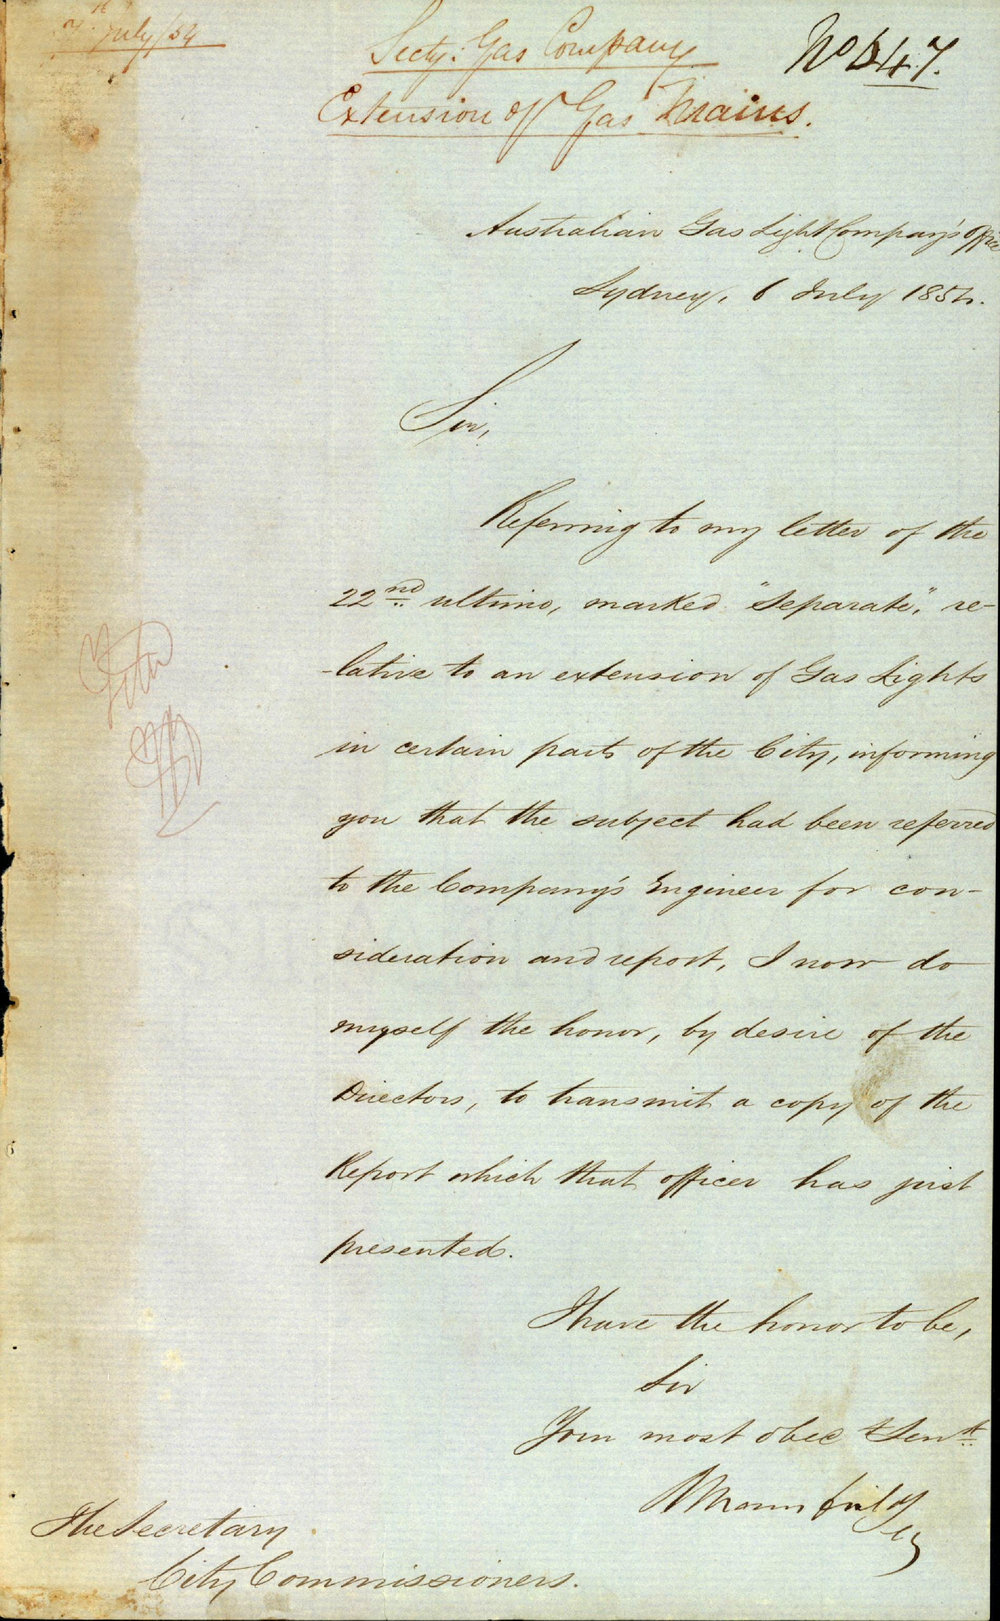 7th July/54
Secty: Gas Company
No 547.
Extension of Gas Mains.
Australian Gas Light Company's Office
Sydney, 6 July 1854.
Sir,
Referring to my letter of the
22nd ultimo, marked "Separate", re-
-lative to an extension of Gas Lights
in certain parts of the City, informing
you that the subject had been referred
to the Company's Engineer for con-
sideration and report, I now do
myself the honor, by desire of the
Directors, to transmit a copy of the
Report which that officer has just
presented.
I have the honor to be,
Sir
Your most obed Servt
Mansfield
Secy
The Secretary
City Commissioners.